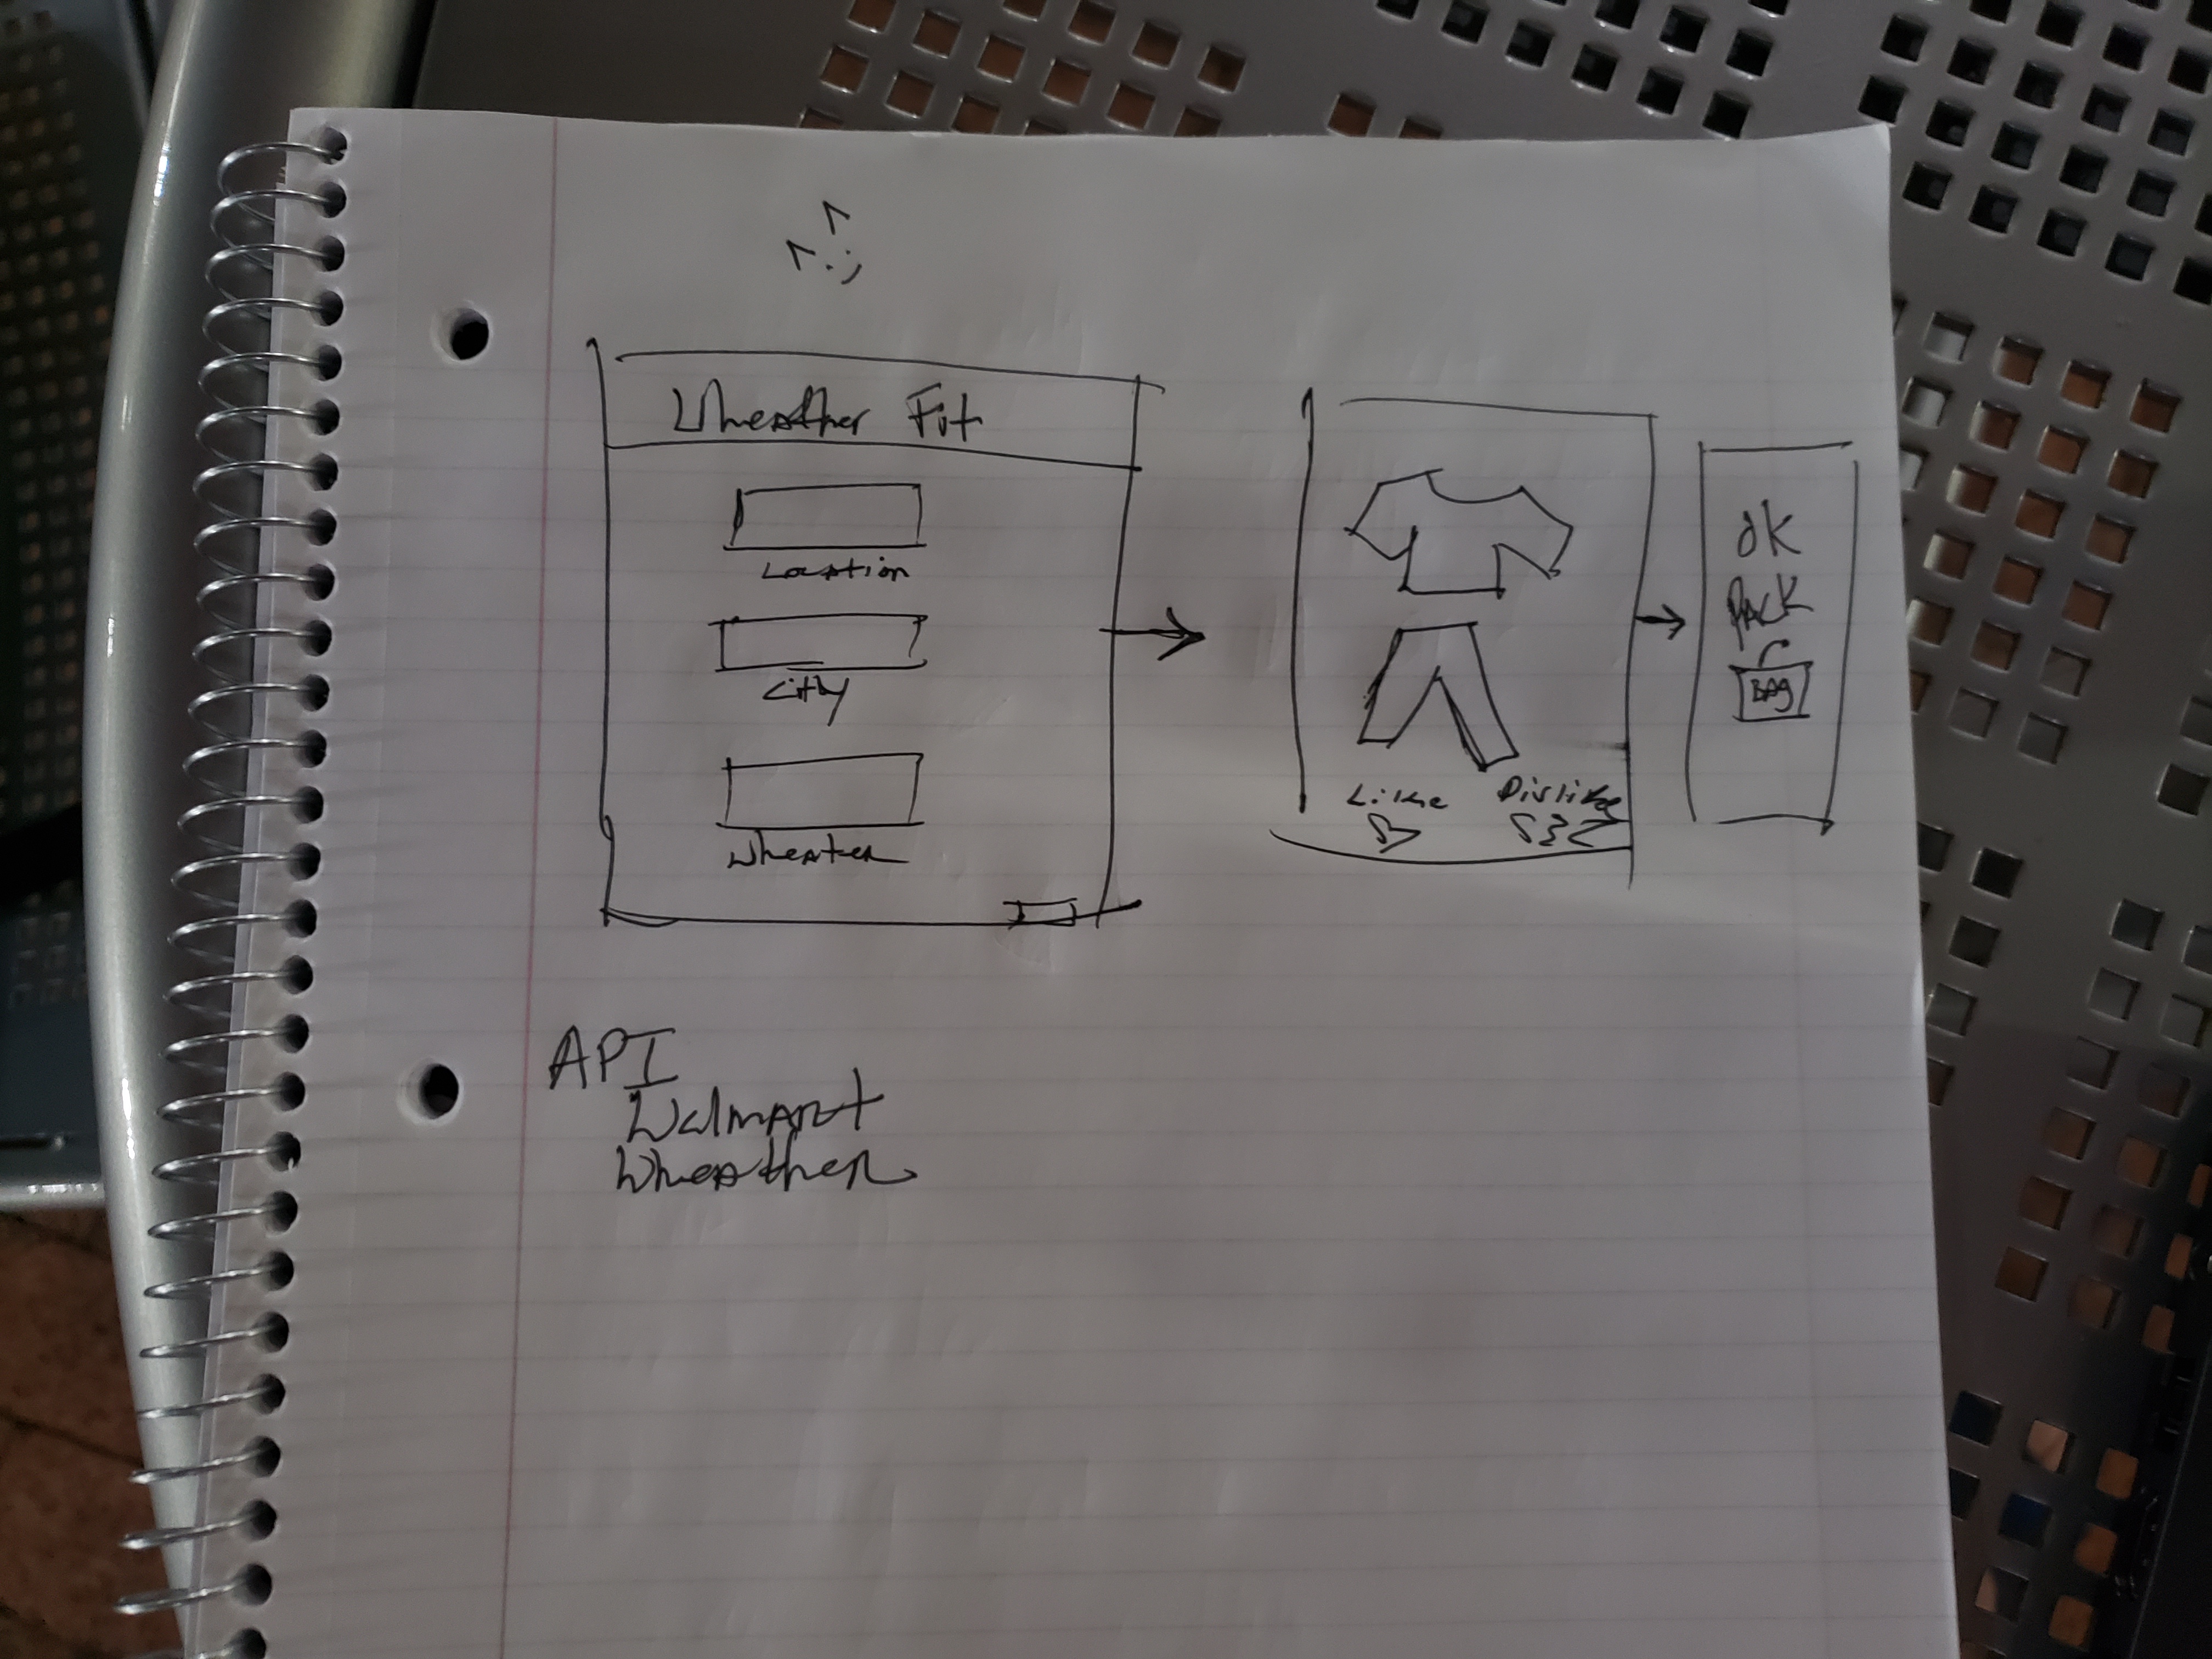 Wheather Fit
Location
City
Wheater
Like Dislike
ok
Pack
BAG
API
Walmart
Wheather